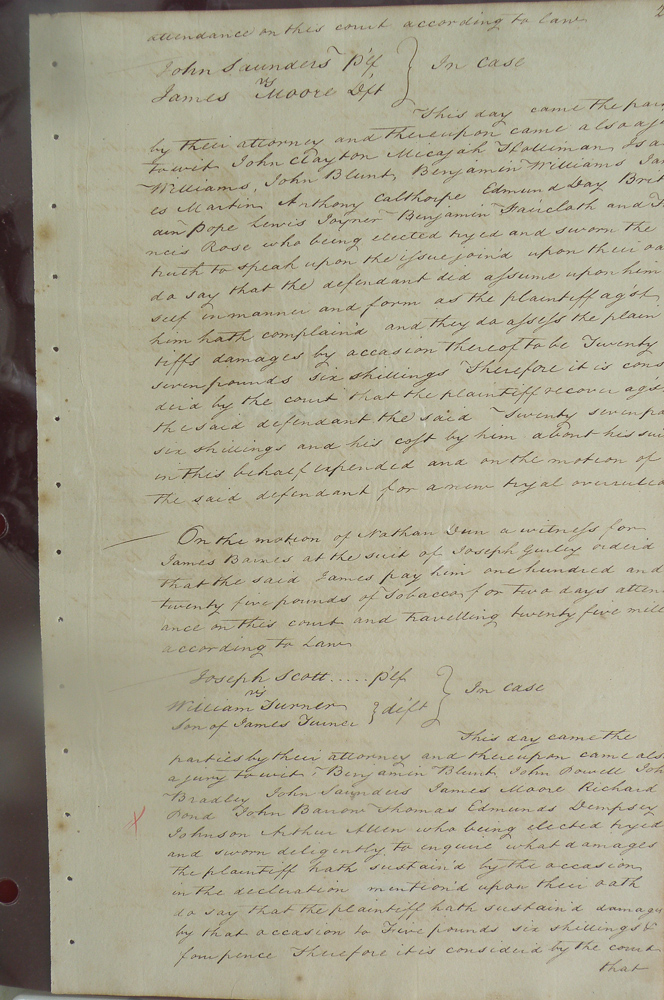 attendance on this court according to law
John Saunders p'lf } In case
vs
James Moore Dft
This day came the par
by their attorney and thereupon came also a ju
to wit John Clayton Micajah Holliman Isa
Williams, John Blunt, Benjamin Williams Ja
es Martin Anthony Calthorpe Edmund Day Brit
ain Pope Lewis Joyner Benjamin Faircloth and F
ncis Rose who being elected tryed and sworn the
truth to speak upon the issue join'd upon their oa
do say that the defendant did assume upon him
self in manner and form as the plaintiff ag'st
him hath complain'd and they do assess the plain
tiffs damages by occasion thereof to be Twenty
seven pounds six shillings Therefore it is cons
der'd by the court that the plaintiff recover ags
the said defendant the said Twenty seven po
six shillings and his cost by him about his sui
in this behalf expended and on the motion of
the said defendant for a new tryal overruled
On the motion of Nathan Dun a witness for
James Barnes at the suit of Joseph Gurley order'd
that the said James pay him one hundred and
twenty five pounds of Tobacco for two days atten
ance on this court and travelling twenty five mile
according to Law
Joseph Scott..... p'lf } In case
vs
William Turner } de'ft
Son of James Turner
This day came the
parties by their attorney and thereupon came also
a jury to wit Benjamin Blunt, John Powell Joh
Bradley John Saunders James Moore Richard
Pond John Barrow Thomas Edmunds Dempsey
Johnson Arthur Allen who being elected tryed
and sworn deligently to inquire what damages
the plaintiff hath sustain'd by the occasion
in the decleration mention'd upon their oath
do say that the plaintiff hath sustain'd damages
by that occasion to Five pounds six shillings &
four pence Therefore it is consider'd by the court
that